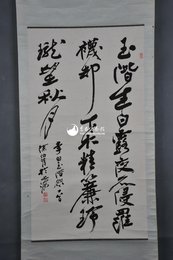 玉階生白露夜久侵羅
襪却下水精簾玲
瓏望秋月
李白玉階怨